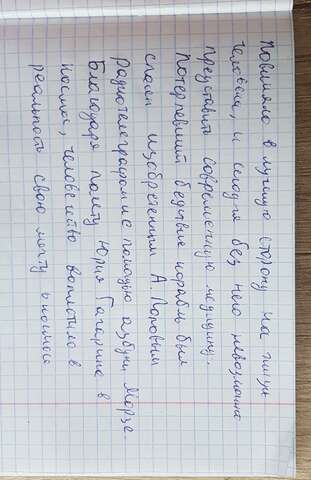 Повлияло в лучшую сторону на жизнь
человека, и сегодня без него невозможно
представить современную медицину.
Потерпевший бедствие корабль был
спасен изобретенным А. Поповым
радиотелеграфом с помощью азбуки Морзе.
Благодаря полету Юрия Гагарина в
космос, человечество воплотило в
реальность свою мечту о космосе